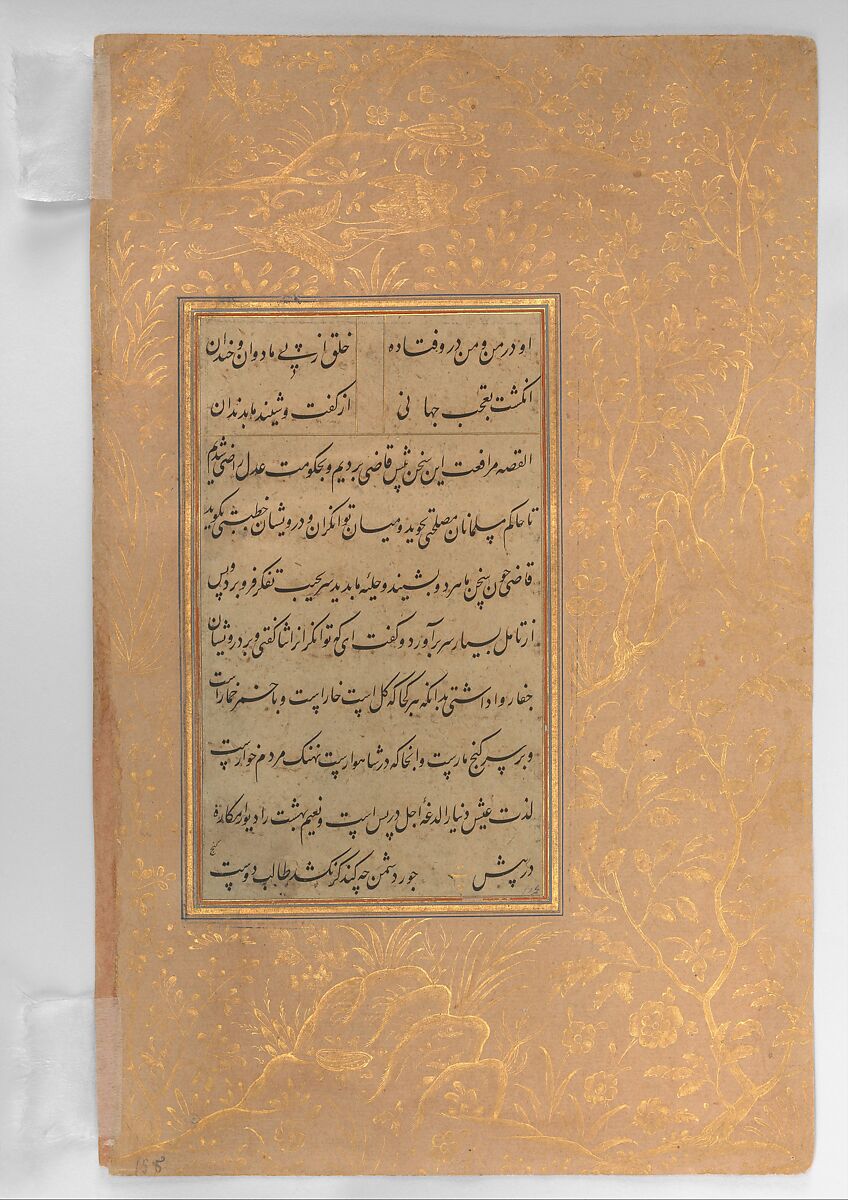 او در من و من درو فتاده خلق از پی ما دوان و خندان
انکشت تعجب جهانی از کفت و شنید ما بدندان
القصه مرافعت این سخن پیش قاضی بردیم و بحکومت عدل راضی شدیم
تا حاکم مسلمانان مصلحتی بجوید و میان توانکران و درویشان بکوید
قاضی چون سخن ما هر دو بشنید و حیله ما بدید سر بجیب تفکر فرو برد و پس
از تامل بسیار سر بر آورد و کفت ای که توانکرانرا ثنا کفتی و بر درویشان
جفا روا داشتی بدانکه هر کجا که کل است خار است و با خمر خمار است
و بر سر کنج مار است و انجا که در شاهوار است نهنک مردم خوار است
لذت عیش دنیا را لدغهٔ اجل در پس است و نعیم بهشت را دیوار مکاره
در پیش جور دشمن چه کند کر نکشد طالب دوست
کنج